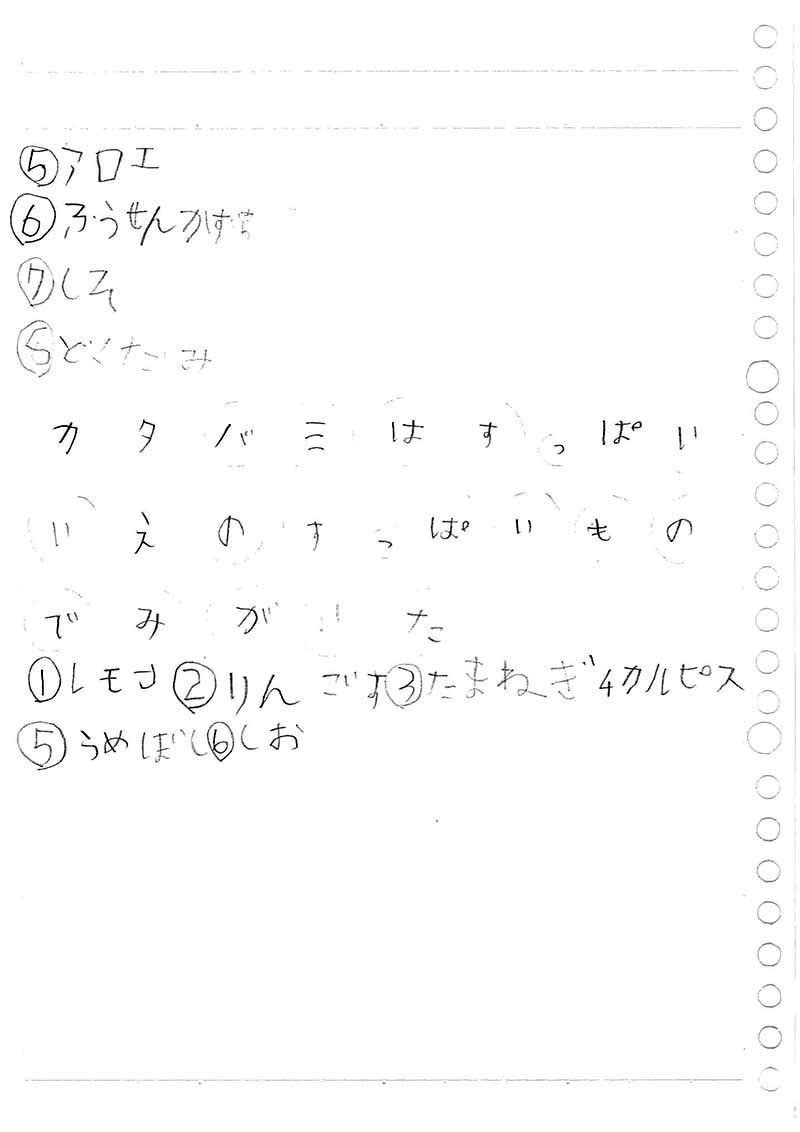 ⑤アロエ
⑥ふうせんかずら
⑦しそ
⑤どくだみ
カタバミはすっぱい
いえのすっぱいもの
でみがいた
①レモン②りんごす③たまねぎ4カルピス
⑤うめぼし⑥しお